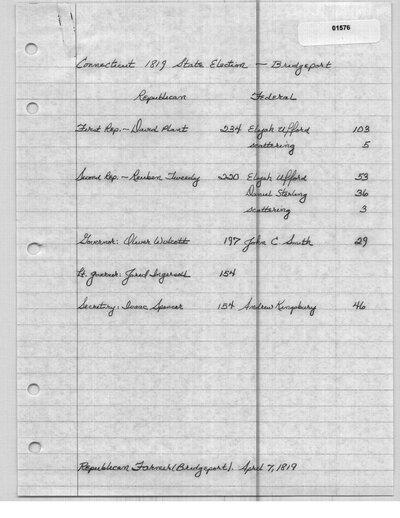 01576
Connecticut 1819 State Election — Bridgeport
Republican Federal
First Rep. — David Plant 234 Elijah Ufford 103
scattering 5
Second Rep. — Reuben Tweedy 220 Elijah Ufford 53
Daniel Sterling 36
scattering 3
Governor: Oliver Wolcott 197 John C Smith 29
Lt. governor: Jared Ingersoll 154
Secretary: Isaac Spencer 154 Andrew Kingsbury 46
Republican Farmer (Bridgeport). April 7, 1819